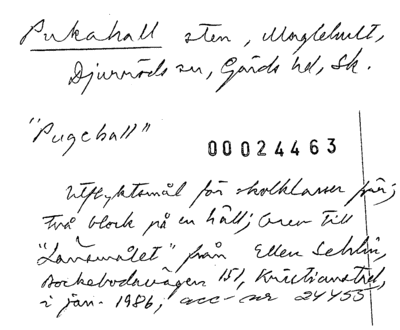 Pukahall sten, Maglehult,
Djurröds sn, Gärds hd, Sk.
"Pugehall"
00024463
Utflyktsmål för skolklasser
två block på en häll; brev till
"Landsmålet" från Ellen Sehlin,
Bockebodavägen 151, Kristianstad,
i jan. 1986, acc-nr 24455